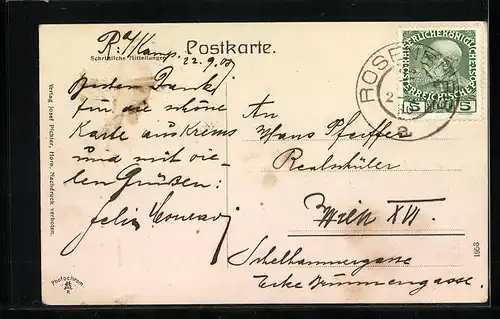 Postkarte.
Schriftliche Mitteilungen
22.9.09
Besten Dank
für die schöne
Karte aus Krems
und mit vie-
len Grüßen:
Felix
An
Hans Pfeiffer
Realschüler
Wien XVI.
Schellhammergasse
Ecke Brunnengasse.
KAISERLICHE KÖNIGLICHE
ÖSTERREICHISCHE POST
5 5
ROSE
a
Verlag Josef Pichler, Horn. Nachdruck verboten.
Photochrom
1953